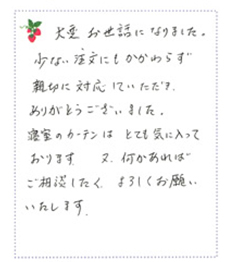 大変 お世話になりました。
少ない注文にもかかわらず
親切に対応していただき
ありがとうございました。
寝室のカーテンは とても気に入って
おります 又、何かあれば
ご相談したく、よろしくお願い
いたします.